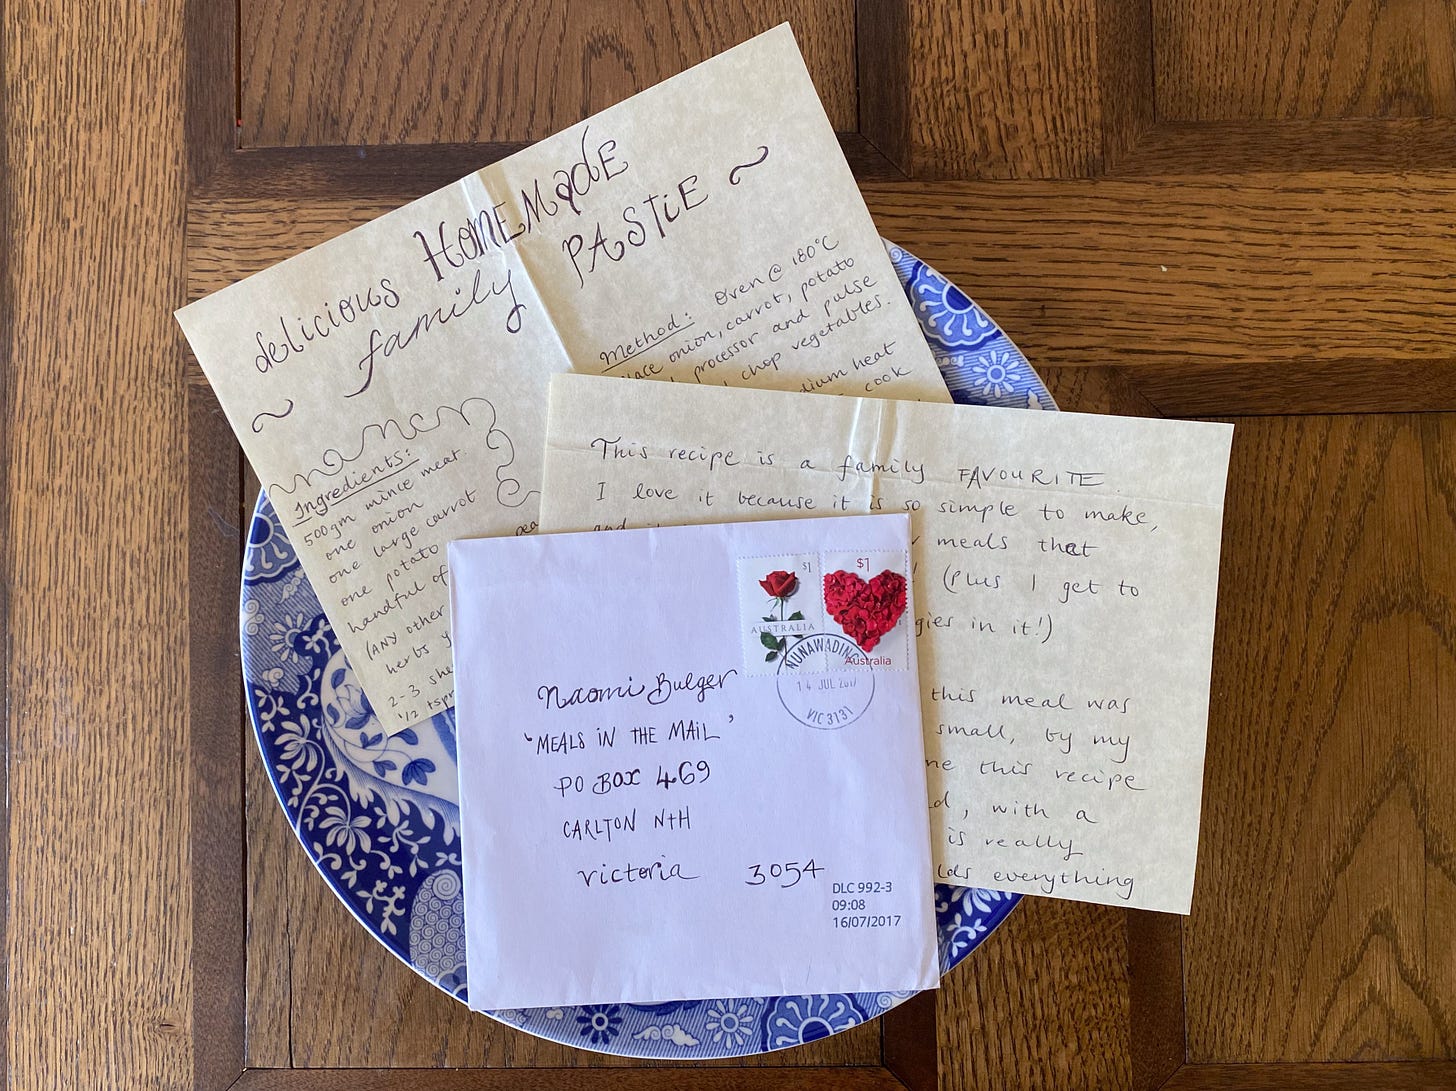 delicious HOMEMADE
family PASTIE
Ingredients:
500gm mince meat.
one onion
one large carrot
one potato
handful of
(ANY other
herbs
2-3
1/2 tspn
Oven @ 180°C
Method:
onion, carrot, potato
processor and pulse
chop vegetables.
heat
cook
This recipe is a family FAVOURITE.
I love it because it is so simple to make,
and
meals that
(Plus I get to
in it!)
this meal was
small, by my
this recipe
with a
is really
everything
$1
AUSTRALIA
$1
Australia
NUNAWADING
14 JUL 2017
VIC 3131
Naomi Bulger
'MEALS IN THE MAIL'
PO BOX 469
CARLTON NTH
victoria 3054
DLC 992-3
09:08
16/07/2017